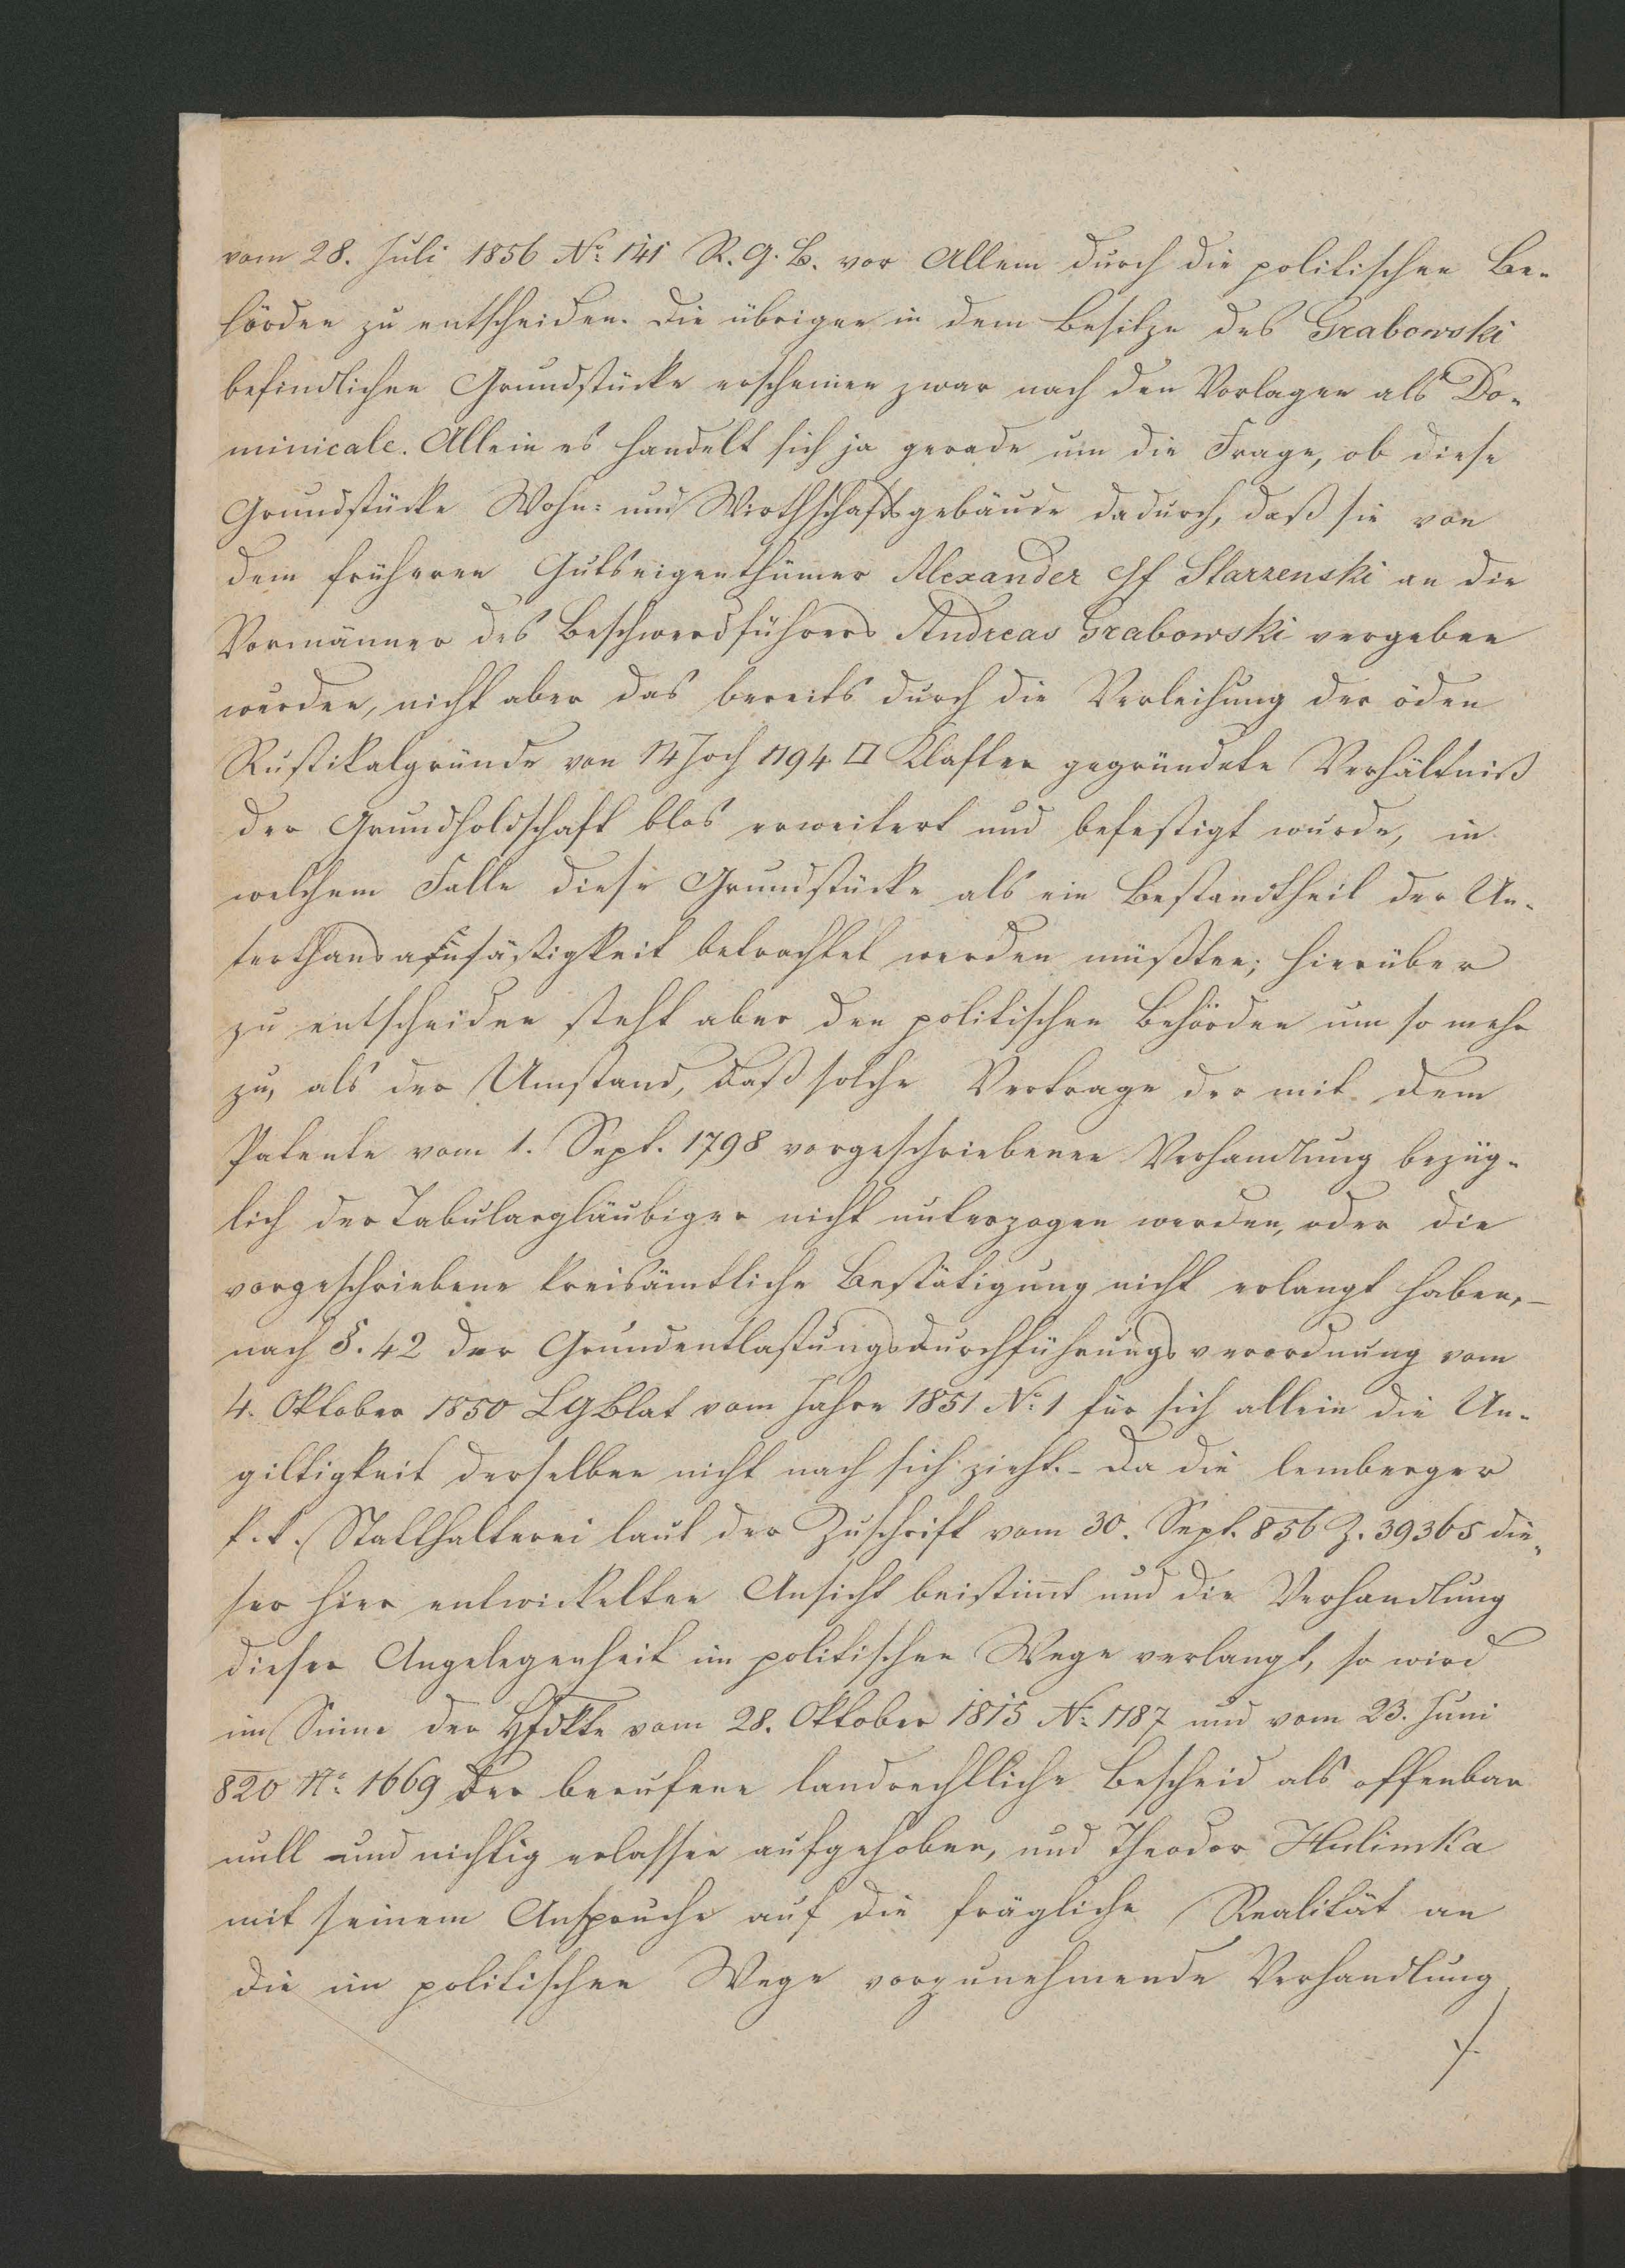 vom 28. Juli 1856 No: 141 R. G. B. vor Allem durch die politischen Be-
hörden zu entscheiden. Die übrigen in dem Besitze des Grabowski
befindlichen Grundstücke erscheinen zwar nach den Vorlagen als Do-
minicale. Allein es handelt sich ja gerade um die Frage, ob diese
Grundstücke Wohn- und Wirthschaftsgebäude dadurch, daß sie von
dem früheren Gutseigenthümer Alexander Gf Starzenski an die
Vormänner des Beschwerdführers Andreas Grabowski vergeben
wurden, nicht aber das bereits durch die Verleihung der öden
Rustikalgründe von 14 Joch 1194 □ Klafter gegründete Verhältniß
der Grundholdschaft blos erweitert und befestigt wurde, in
welchem Falle diese Grundstücke als ein Bestandtheil der Un-
terthansansäßigkeit betrachtet werden müßten; hierüber
zu entscheiden steht aber den politischen Behörden um so mehr
zu, als der Umstand, daß solche Vertrage der mit dem
Patente vom 1. Sept. 1798 vorgeschriebenen Verhandlung bezüg-
lich der Tabulargläubiger nicht unterzogen werden, oder die
vorgeschriebene kreisämtliche Bestätigung nicht erlangt haben, –
nach §. 42 der Grundentlastungsdurchführungsverordnung vom
4. Oktober 1850 LGBlat vom Jahre 1851 No: 1 für sich allein die Un-
giltigkeit derselben nicht nach sich zieht. – Da die lemberger
k. k. Statthalterei laut der Zuschrift vom 30. Sept. 856 Z. 39365 die-
ser hier entwickelten Ansicht beistimt und die Verhandlung
dieser Angelegenheit im politischen Wege verlangt, so wird
im Sinne der Hfdkte vom 28. Oktober 1815 No: 1187 und vom 23. Juni
820 No: 1669 der berufene landrechtliche Bescheid als offenbar
null und nichtig erlassen aufgehoben, und Theodor Hulimka
mit seinem Anspruche auf die frägliche Realität an
die im politischen Wege vorzunehmende Verhandlung